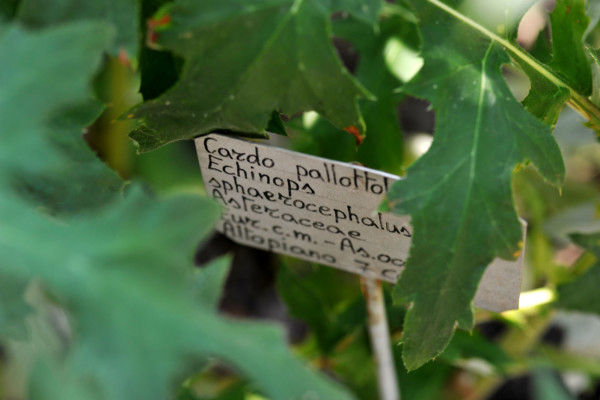 Cardo pallottol
Echinops
sphaerocephalus
Asteraceae
Eur.c.m. - As.oc
Altopiano 7 C